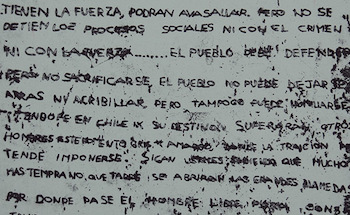 TIENEN LA FUERZA, PODRAN AVASALLAR. PERO NO SE
DETIENEN LOS PROCESOS SOCIALES NI CON EL CRIMEN
NI CON LA FUERZA....... EL PUEBLO DEBE DEFENDER
PERO NO SACRIFICARSE. EL PUEBLO NO PUEDE DEJARSE
ARRAS NI ACRIBILLAR, PERO TAMPOCO PUEDE HUMILLARSE
EN CHILE Y SU DESTINO. SUPERARAN OTROS
HOMBRES ESTE MOMENTO GRIS Y AMARGO, DONDE LA TRAICION PRE
TENDE IMPONERSE. SIGAN USTEDES SABIENDO QUE MUCHO
MAS TEMPRANO QUE TARDE, SE ABRIRAN LAS GRANDES ALAMEDAS
POR DONDE PASE EL HOMBRE LIBRE PARA CONS